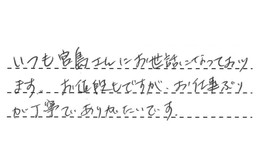 いつも宮島さんにお世話になっており
ます。お値段もですが、お仕事ぶり
が丁寧でありがたいです